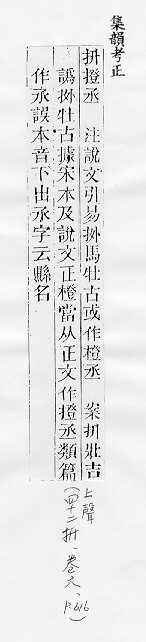 集韻考正
抍撜丞　注說文引易拚馬牡古或作橙丞　案抍壯吉
譌拚牡古據宋本及說文正橙當从正文作撜丞類篇
作氶誤本音下出丞字云縣名
上聲
(四十二抍、卷六、P.616)